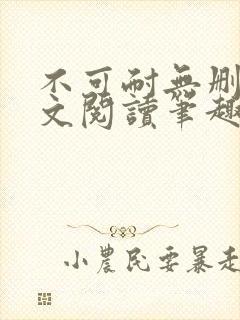 不可耐無刪
文閱讀筆趣
小農民要暴走